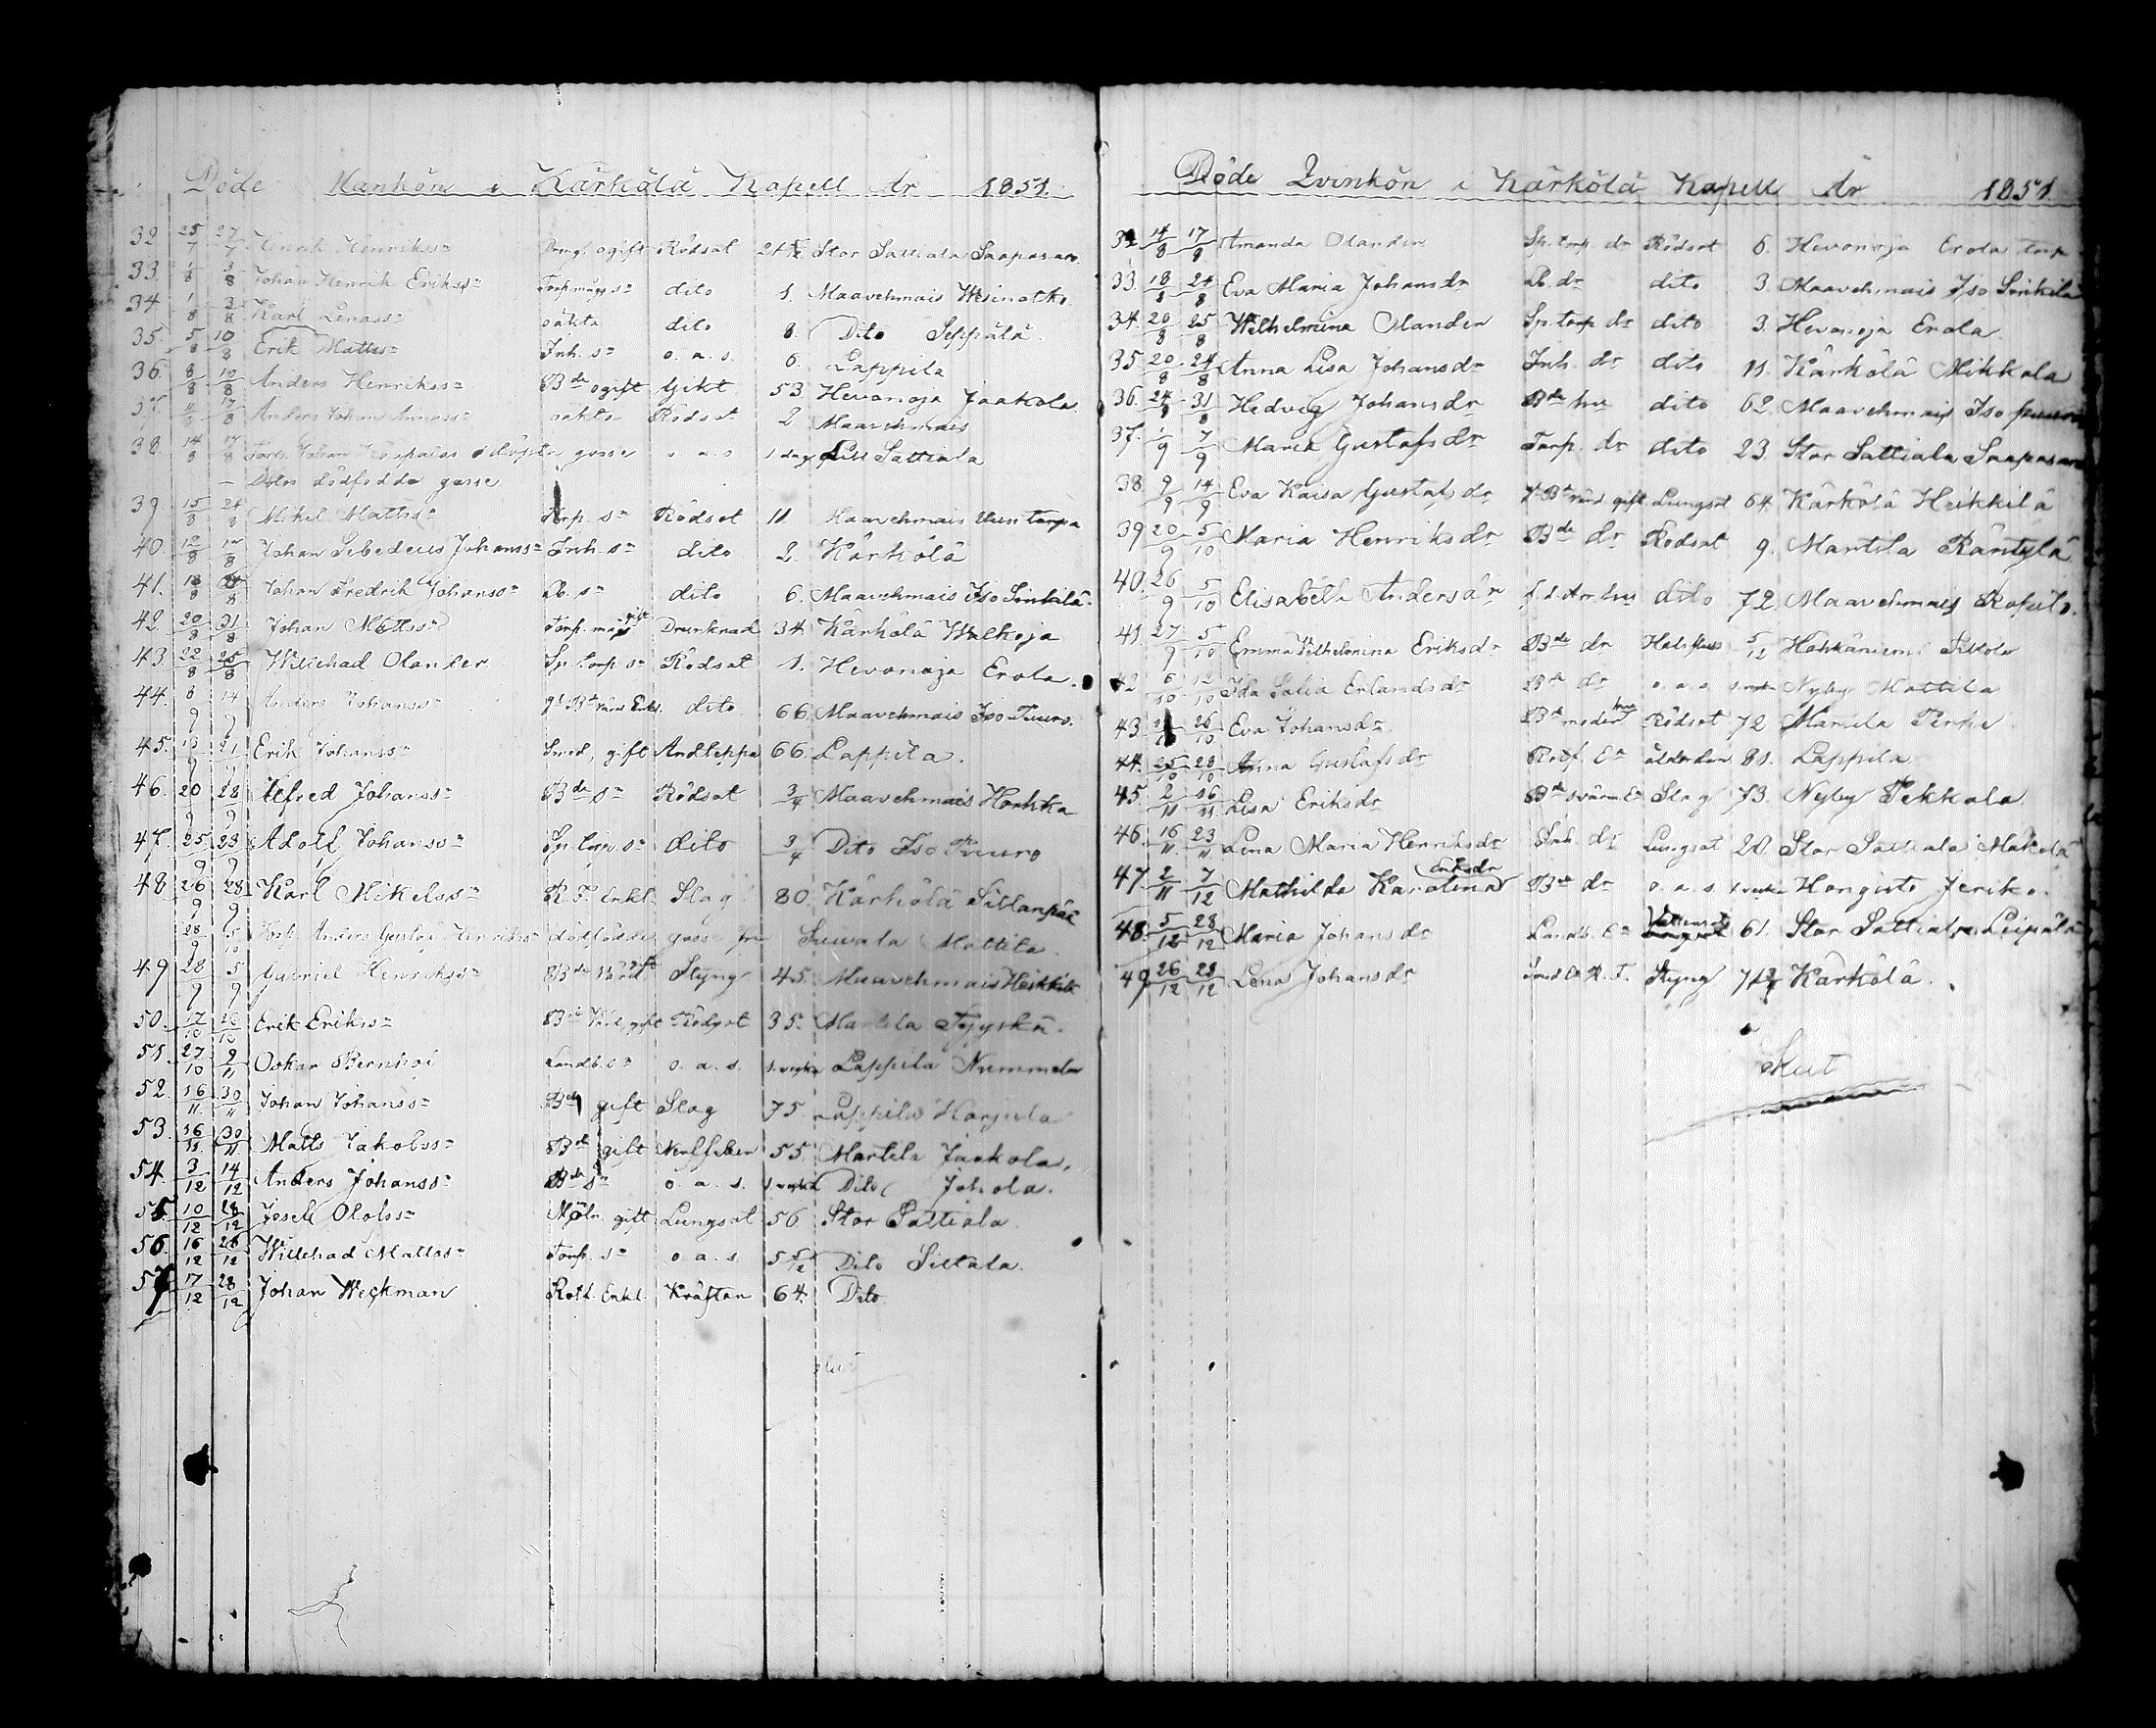 Döde Mankön i Kärkölä Kapell År 1851.
32 25/7 27/7 Henrik Henrikss:n Dreng ogift Rödsot 21 Stor Sattiala Saapasaro
33. 1/8 3/8 Johan Henrik Erikss:n Torp.mågs s:n dito 1. Maavehmais Wesinotko.
34 1/8 3/8 Karl Lenass:n oäkta dito 8. Dito Seppälä
35. 5/8 10/8 Erik Mattss:n Inh. s:n o. a. s. 6. Lappila
36. 8/8 10/8 Anders Henrikss:n B:de ogift Gikt 53 Hevonoja Jaakola
37. 11/8 17/8 Anders Johan Annass:n oäkta Rödsot 2 Maavehmais
38. 14/8 17/8 Torp. Johan odöpta gosse o a s 1 dag Lill Sattiala
— Ditos dödfödda gosse
39 15/8 24/8 Mikel Mattss:n Torp. s:n Rödsot 11 Maavehmais torpa
40. 12/8 17/8 Johan Sebedeus Johanss:n Inh. s:n dito 2. Kärkölä
41. 18/8 24/8 Johan Fredrik Johanss:n Db. s:n dito 6. Maavehmais Iso Sinkilä
42. 20/8 31/8 Johan Mattss:n Torp. måg gift Drunknad 34 Kärkölä Walkoja
43. 22/8 25/8 Willehad Olander Sp. torp. s:n Rödsot 1. Hevonoja Erola.
44. 8/9 14/9 Anders Johanss:n g:l B:de värd Enkl. dito 66. Maavehmais Iso Puuro.
45. 13/9 21/9 Erik Johanss:n Smed, gift Andteppa 66. Lappila.
46. 20/9 28/9 Alfred Johanss:n B:de s:n Rödsot 3/4 Maavehmais Honkka
47. 25/9 28/9 Adolf Johanss:n Sp. torp. s:n dito 3/4 Dito Iso Puuro
48 26/9 28/9 Karl Mikelss:n R. F. Enkl. Slag 80. Kärkölä Sillanpää
28/9 5/10 Torp. Anders Gustaf Henrikss:n dödfödda gosse fr: Suurola Mattila
49 28/9 5/9 Gabriel Henrikss:n B:de Värd gift Styng 45. Maavehmais Heikkilä
50. 17/10 26/10 Erik Erikss:n B:de Värd gift Rödsot 35. Martila Tyyskä.
51. 27/10 2/11 Oskar Bernhard Landb. s:n o. a. s. 1. vecka Lappila Nummela
52. 16/11 30/11 Johan Johanss:n B:de gift Slag 75. Lappila Harjula
53. 16/11 30/11 Matts Jakobss:n B:de gift Nerffeber 55. Martila Jaakola.
54. 3/12 14/12 Anders Johanss:n B:de s:n o. a. s. 1 vecka Dito Johola.
55. 10/12 28/12 Josef Olofss:n Mjöln. gift Lungsot 56 Stor Sattiala.
56. 16/12 26/12 Willehad Mattss:n Torp. s:n o. a. s. 5 5/12 Dito Siltala.
57 17/12 28/12 Johan Weckman Roth. Enkl. Kräftan 64. Dito
slut
Döde Qvinkön i Kärkölä Kapell År 1851.
32 14/8 17/8 Amanda Olander Sp. torp. d:r Rödsot 6. Hevonoja Erola torp
33. 18/8 24/8 Eva Maria Johansd:r Db. d:r dito 3. Maavehmais Iso Sinkilä
34. 20/8 25/8 Wilhelmina Olander Sp. torp. d:r dito 3. Hevonoja Erola
35 20/8 24/8 Anna Lisa Johansd:r Inh. d:r dito 11. Kärkölä Mikkola
36. 24/8 31/8 Hedvig Johansd:r B:de hu dito 62. Maavehmais Iso puuro
37. 1/9 7/9 Maria Gustafsd:r Torp. d:r dito 23. Stor Sattiala Saapasaro
38. 9/9 14/9 Eva Kaisa Gustafsd:r B:de värd gift Lungsot 64. Kärkölä Heikkilä
39 20/9 5/10 Maria Henriksd:r B:de d:r Rödsot 9. Mantila Räntylä
40. 26/9 5/10 Elisabeth Andersd:r f. d. dr hu dito 72. Maavehmais Ropilo.
41. 27/9 5/10 Emma Wilhelmina Eriksd:r B:de d:r Halsfluss 5/12 Hahkäniemi Sikola
42 6/10 12/10 Ida Sofia Erlandsd:r B:de d:r o. a. s. 1 vecka Nyby Mattila
43 26/10 Eva Johansd:r B:de moder hus Rödsot 72 Marttila
44. 25/10 28/10 Anna Gustafsd:r Rotf. E:a ålderdom 81. Lappila
45. 2/11 16/11 Lisa Eriksd:r B:de svärm. E:a Slag 73. Nyby Pekkola
46. 16/11 23/11 Lena Maria Henriksd:r Inh. d:r Lungsot 20. Stor Sattiala Mäkelä
47 2/11 7/12 Mathilda Karolina Eriksd:r B:de d:r o. a. s 1 vecka Hongisto Jeriko.
48. 5/12 28/12 Maria Johansd:r Landb. E:a Vattusot 61. Stor Sattiala Leipälä
49 26/12 28/12 Lena Johansd:r Smed E:a R. F. Styng 71 Kärkölä.
Slut